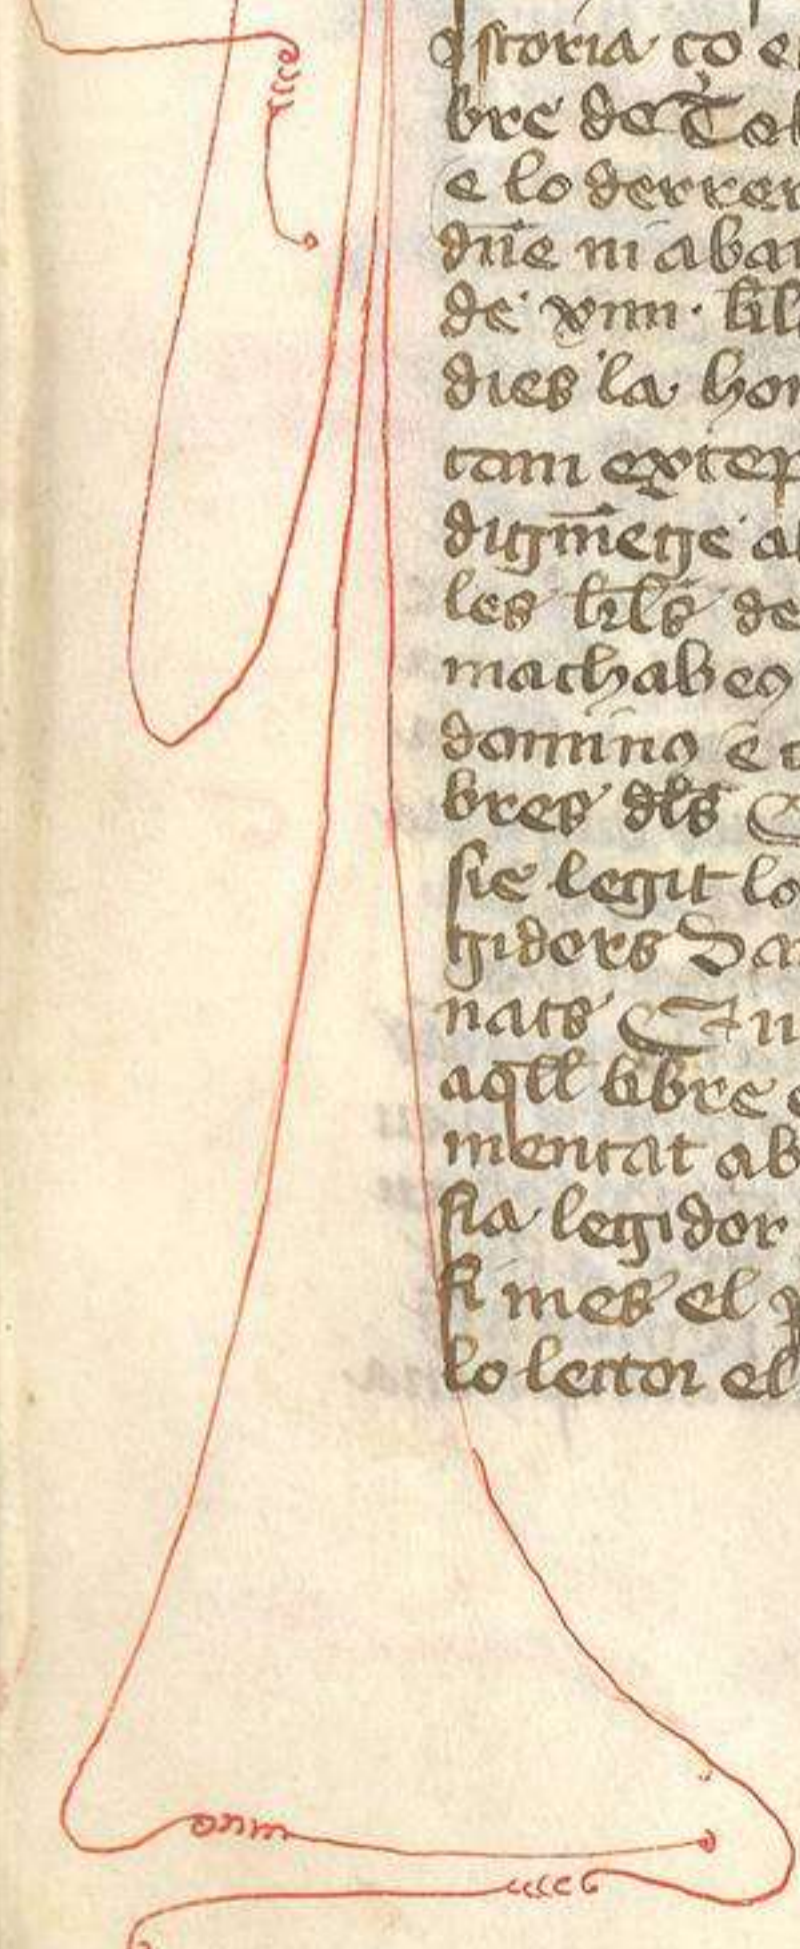 storia co e
bre de Tob
e lo derrer
dñe ni aba
de xviii· lib
dies la hon
tam excep
les libs de
machabeo
domino e
bres dls
sie legit lo
gidors Da
nats En
aqll libre e
mentat ab
sia legidor
si mes el p
lo lector el